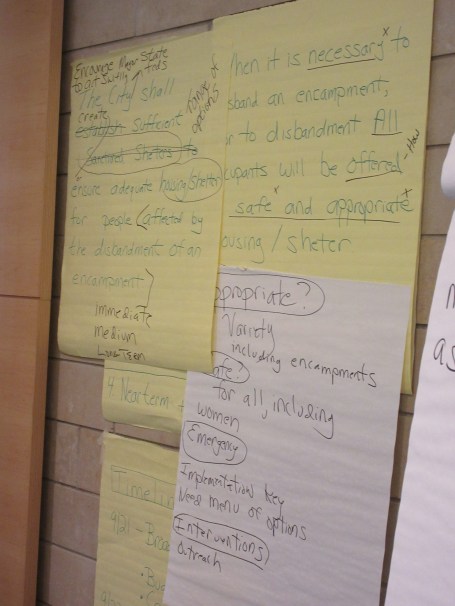 Encourage Major State
to act swiftly
The City shall
create
establish sufficient
range of
options
ensure adequate housing/shelter
for people (affected by
the disbandment of an
encampment)
immediate
medium
Long Term
hen it is necessary x to
sband an encampment,
or to disbandment All
How
cupants will be offered
safe x and appropriate x
ousing / sheter
ppropriate?
Variety
including encampments
afe?
for all, including
women
Emergency
Implementation key
Need menu of options
Interventions
Outreach
4. Near term
Timelin
9/21 -